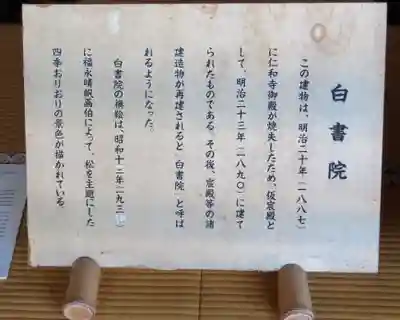 白書院
この建物は、明治二十年（一八八七）
に仁和寺御殿が焼失したため、仮宸殿と
して、明治二十三年（一八九〇）に建て
られたものである。その後、宸殿等の諸
建造物が再建されると「白書院」と呼ば
れるようになった。
白書院の襖絵は、昭和十二年（一九三
に福永晴帆画伯によって、松を主題にした
四季おりおりの景色が描かれている。